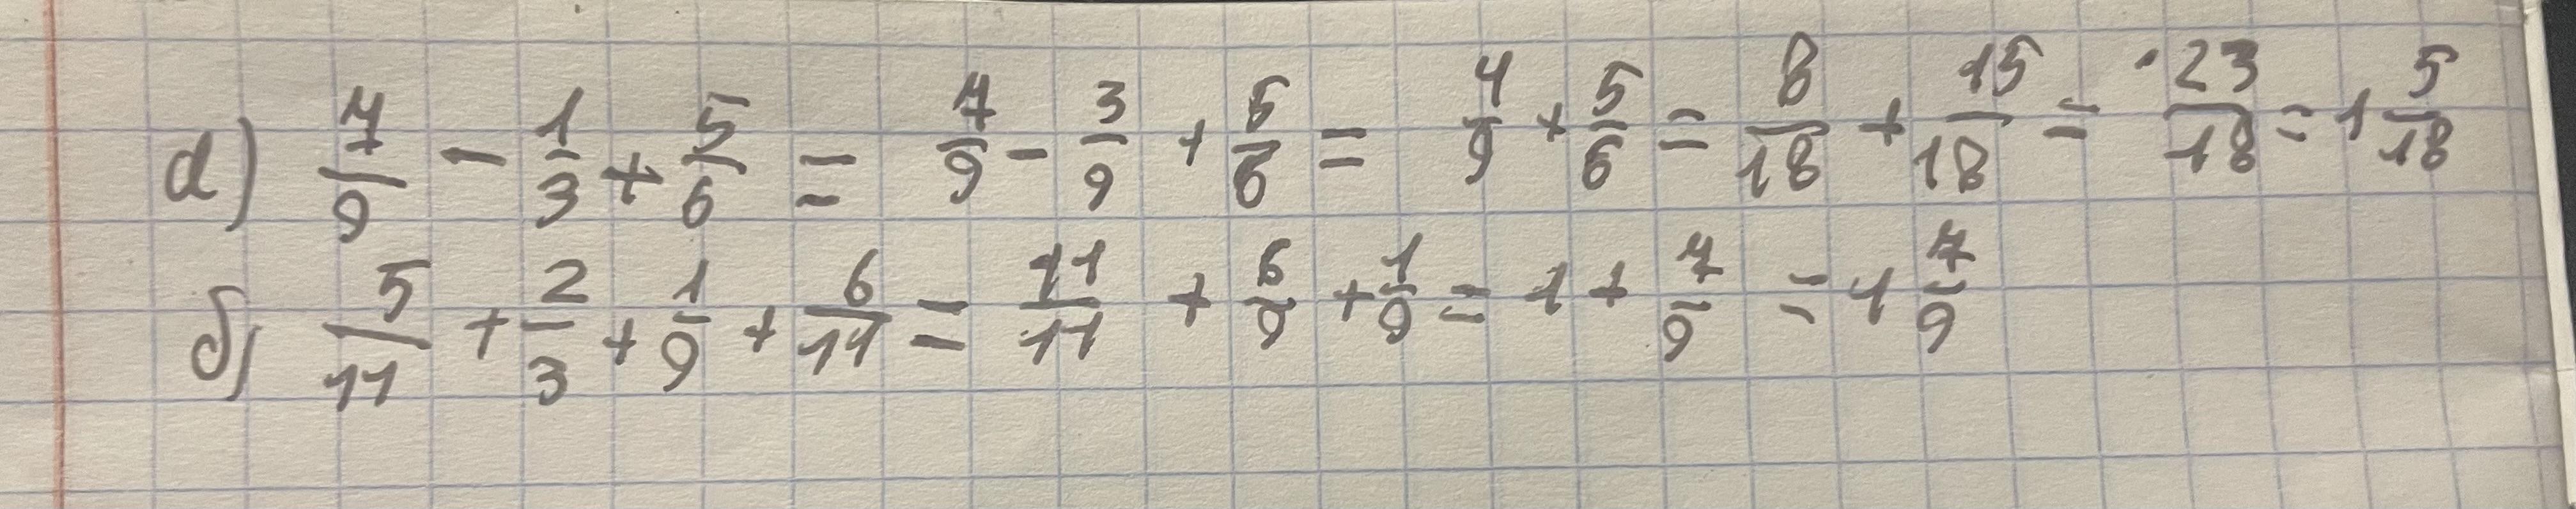 а) 7/9 - 1/3 + 5/6 = 7/9 - 3/9 + 5/6 = 4/9 + 5/6 = 8/18 + 15/18 = 23/18 = 1 5/18
б) 5/11 + 2/3 + 1/9 + 6/11 = 11/11 + 6/9 + 1/9 = 1 + 7/9 = 1 7/9